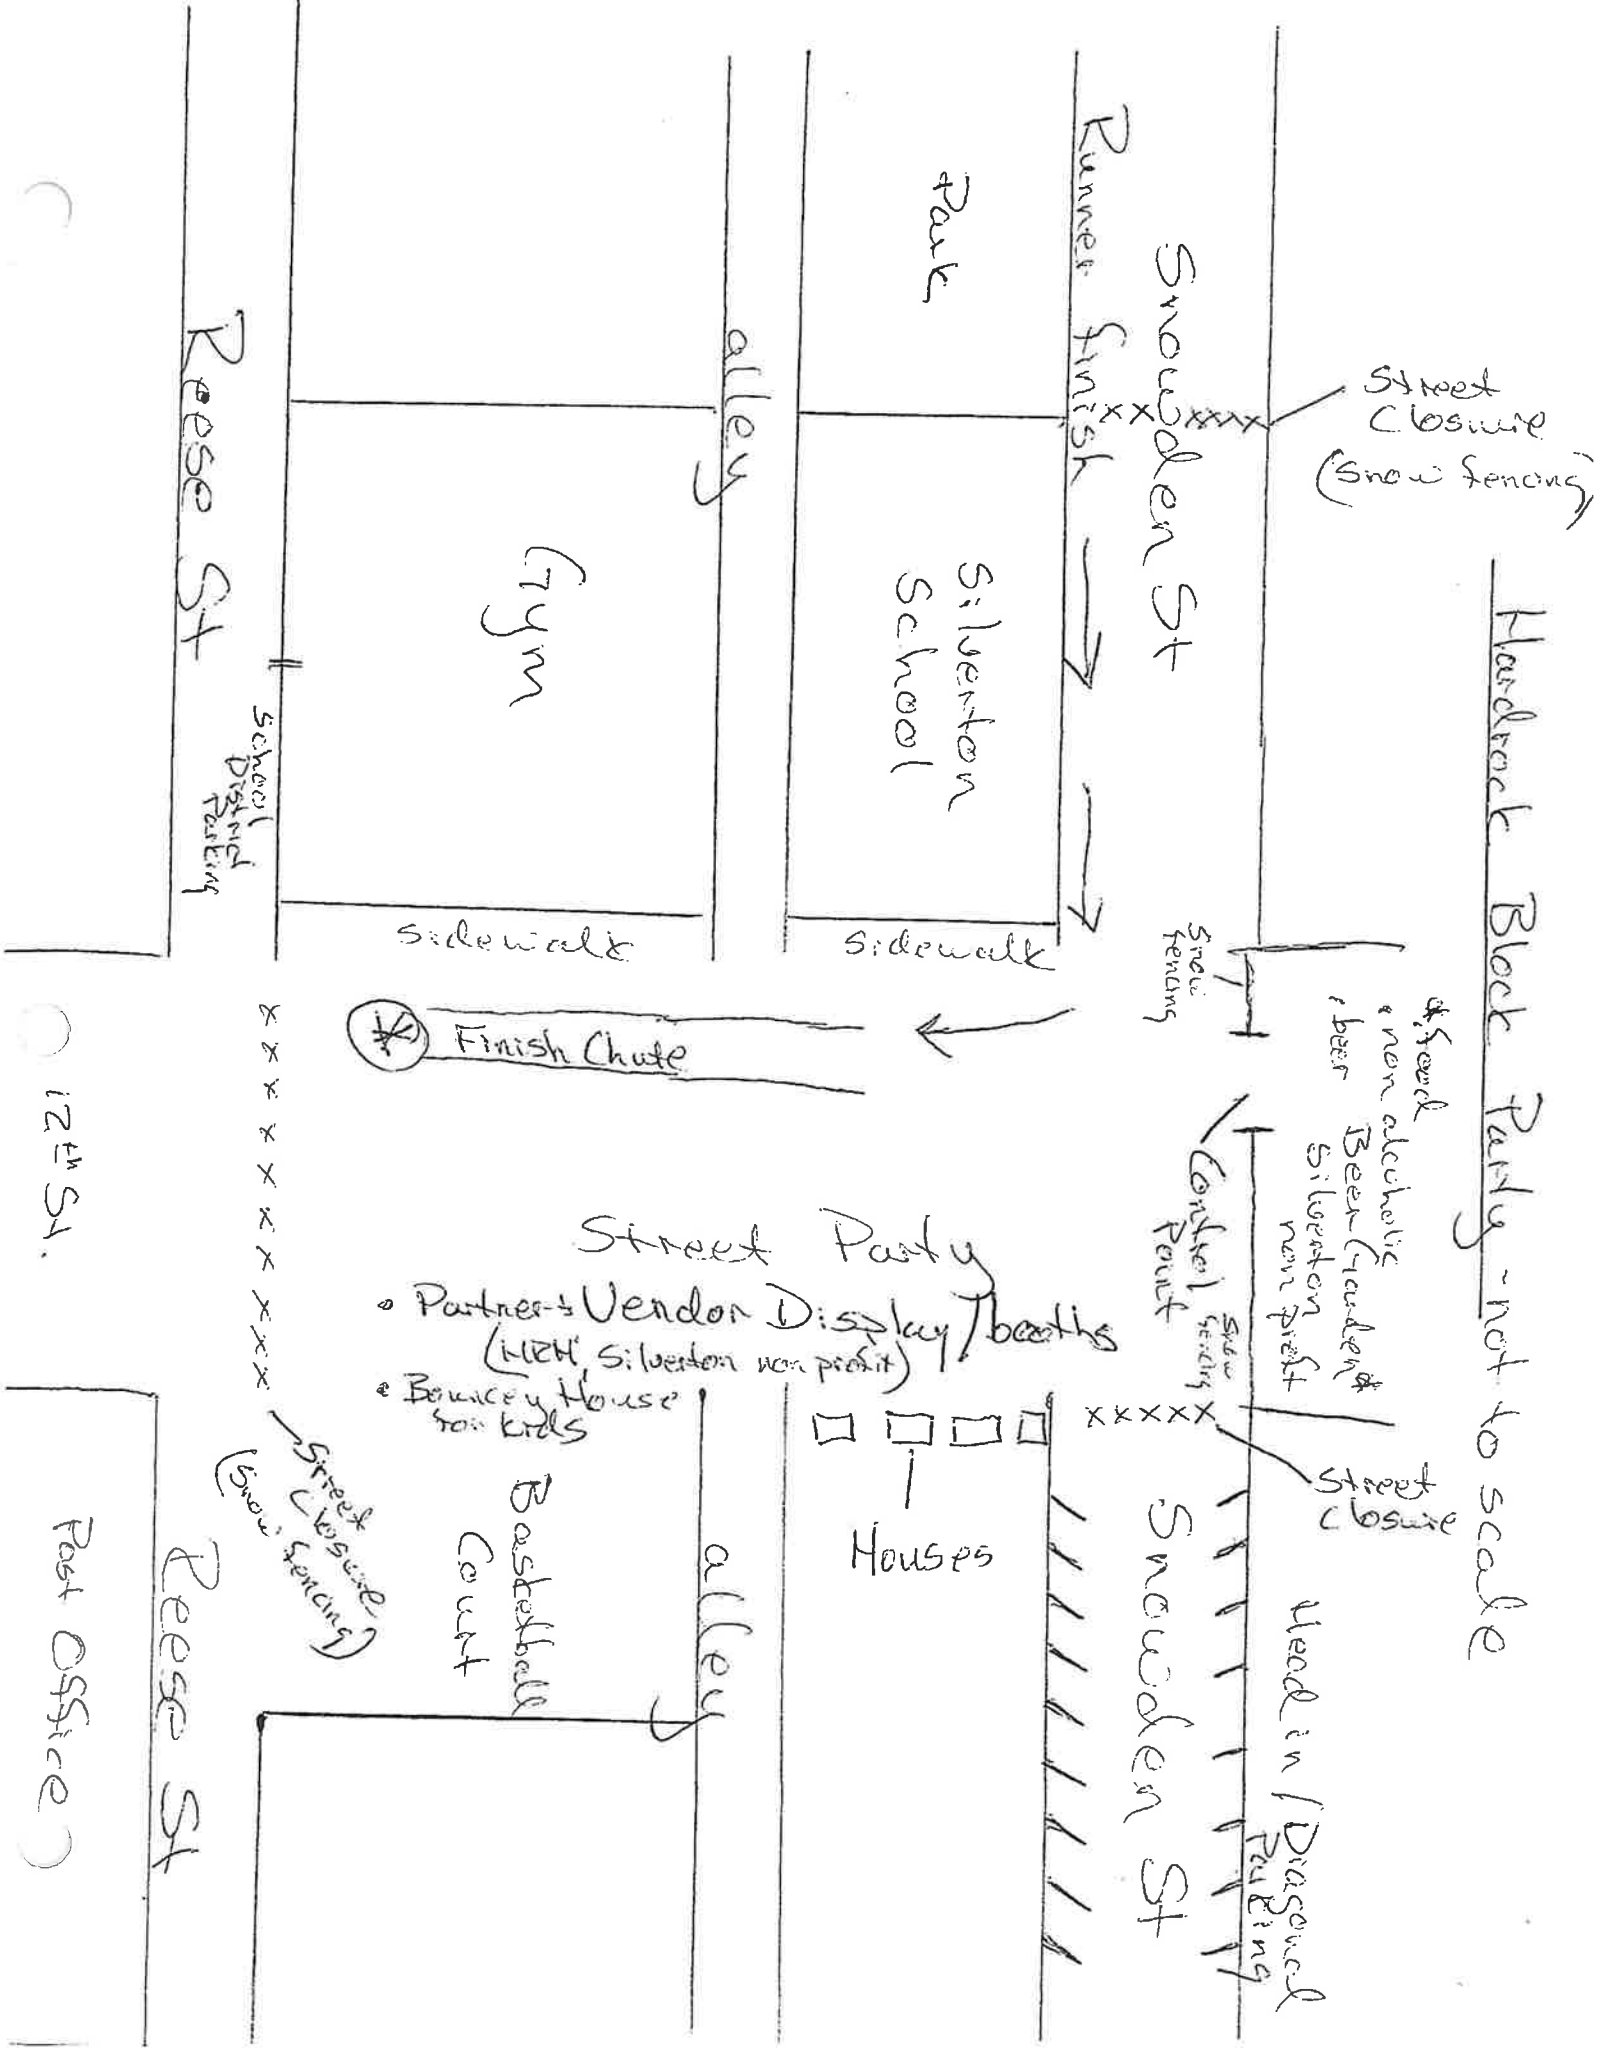 Hardrock Block Party - not to scale
Street
Closure
(Snow fencing)
Snowden St
Runner finish
Park
alley
Reese St
Silverton
School
Gym
School
District
Parking
Sidewalk
Sidewalk
Snow
fencing
* food
• non alcoholic
• beer
Beer Garden *
Silverton
non profit
Control
Point
Snow
fencing
Finish Chute
12th St.
Street Party
• Partner + Vendor Display / booths
(HRH, Silverton non profit)
• Bouncey House
for kids
Street
Closure
(Snow fencing)
Houses
Street
Closure
Basketball
Court
alley
Snowden St
Head in / Diagonal
Parking
Reese St
Post Office